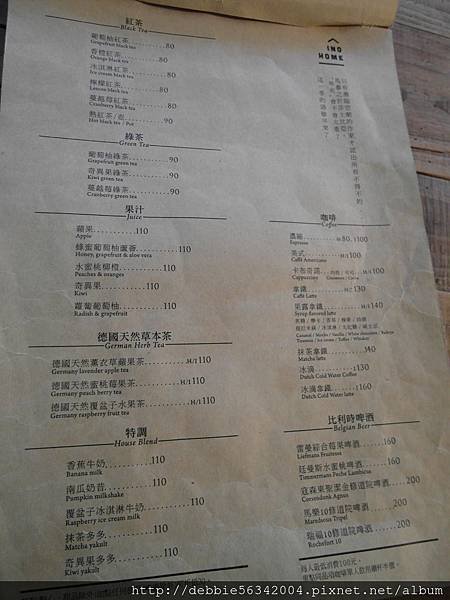 紅茶
Black Tea
葡萄柚紅茶..........80
Grapefruit black tea
香橙紅茶..........80
Orange black tea
冰淇淋紅茶..........80
Ice cream black tea
檸檬紅茶..........80
Lemon black tea
蔓越莓紅茶..........80
Cranberry black tea
熱紅茶/壺..........90
Hot black tea / Pot
綠茶
Green Tea
葡萄柚綠茶..........90
Grapefruit green tea
奇異果綠茶..........90
Kiwi green tea
蔓越莓綠茶..........90
Cranberry green tea
果汁
Juice
蘋果..........110
Apple
蜂蜜葡萄柚蘆薈..........110
Honey, grapefruit & aloe vera
水蜜桃柳橙..........110
Peaches & oranges
奇異果..........110
Kiwi
蘿蔔葡萄柚..........110
Radish & grapefruit
德國天然草本茶
German Herb Tea
德國天然薰衣草蘋果茶..........H/I 110
Germany lavender apple tea
德國天然蜜桃莓果茶..........H/I 110
Germany peach berry tea
德國天然覆盆子水果茶..........H/I 110
Germany raspberry fruit tea
特調
House Blend
香蕉牛奶..........110
Banana milk
南瓜奶昔..........110
Pumpkin milkshake
覆盆子冰淇淋牛奶..........110
Raspberry ice cream milk
抹茶多多..........110
Matcha yakult
奇異果多多..........110
Kiwi yakult
INO
HOME
這一季的濃華年來了
咖啡
Coffee
濃縮..........80. 100
Espresso
美式..........H/I 100
Caffè Americano
卡布奇諾 H/I 100
Cappuccino
拿鐵..........H/I 120
Caffè Latte
果露拿鐵..........H/I 140
Syrup flavored latte
抹茶拿鐵..........140
Matcha latte
冰滴..........130
Dutch Cold Water Coffee
冰滴拿鐵..........160
Dutch Cold Water Latte
比利時啤酒
Belgian Beer
雷曼綜合莓果啤酒......160
Liefmans Fruitesse
廷曼斯水蜜桃啤酒......160
Timmermans Peche Lambicus
寇森東聖潔金修道院啤酒......200
Corsendonk Agnus
馬樂10修道院啤酒......200
Maredsous Tripel
瑞福10修道院啤酒......200
Rochefort 10
每人最低消費100元，
http://debbie56342004.pixnet.net/album